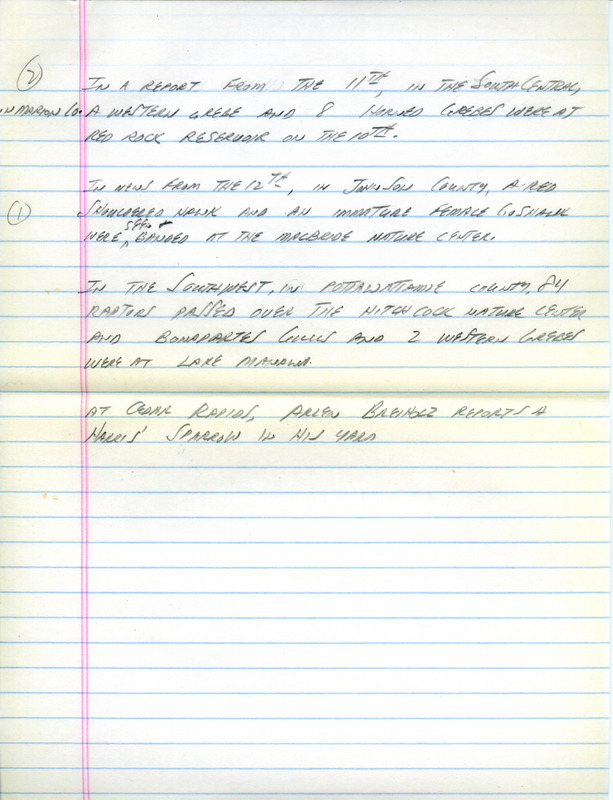 (2) IN A REPORT FROM THE 11TH, IN THE SOUTH CENTRAL,
IN MARION CO. A WESTERN GREBE AND 8 HORNED GREBES WERE AT
RED ROCK RESERVOIR ON THE 10TH.
IN NEWS FROM THE 12TH, IN JOHNSON COUNTY, A RED
(1) SHOULDERED HAWK AND AN IMMATURE FEMALE GOSHAWK
WERE SEEN + BANDED AT THE MACBRIDE NATURE CENTER.
IN THE SOUTHWEST, IN POTTAWATTAMIE COUNTY, 84
RAPTORS PASSED OVER THE HITCHCOCK NATURE CENTER
AND BONAPARTES GULLS AND 2 WESTERN GREBES
WERE AT LAKE MANAWA.
AT CEDAR RAPIDS, ARLEN BREIHOLZ REPORTS A
HARRIS' SPARROW IN HIS YARD